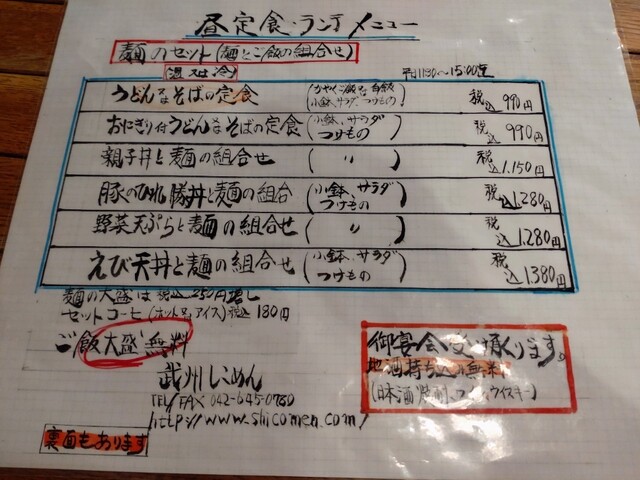 昼定食・ランチメニュー
麺のセット(麺とご飯の組合せ)
(温又は冷)
平日11:30〜15:00迄
うどん又はそばの定食 (かやくご飯又は白飯 小鉢、サラダ、つけもの) 税込990円
おにぎり付うどん又はそばの定食 (小鉢、サラダ つけもの) 税込990円
親子丼と麺の組合せ ( 〃 ) 税込1,150円
豚のひれ勝丼と麺の組合 (小鉢、サラダ つけもの) 税込1,280円
野菜天ぷらと麺の組合せ ( 〃 ) 税込1,280円
えび天丼と麺の組合せ (小鉢、サラダ つけもの) 税込1,380円
麺の大盛は 税込250円増し
セットコーヒ (ホット又は、アイス) 税込180円
ご飯大盛無料
御宴会受け承ります。
地酒持ち込み無料
(日本酒、焼酎、ワイン、ウイスキー)
武州しこめん
TEL/FAX 042-645-0780
http://www.shicomen.com/
裏面もあります